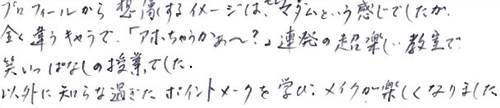 プロフィールから想像するイメージはセレブマダムという感じでしたが、
全く違うキャラで、「アホちゃうかぁ〜?」連発の超楽しい教室で
笑いっぱなしの授業でした。
以外に知らな過ぎたポイントメークを学び、メイクが楽しくなりました